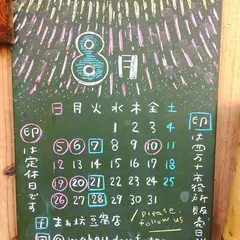 8月
日 月 火 水 木 金 土
1 2 3 4
5 6 7 8 9 10 11
12 13 14 15 16 17 18
19 20 21 22 23 24 25
26 27 28 29 30 31
印は四万十市役所販売日
印は定休日です
f 豆腐店
please
follow us